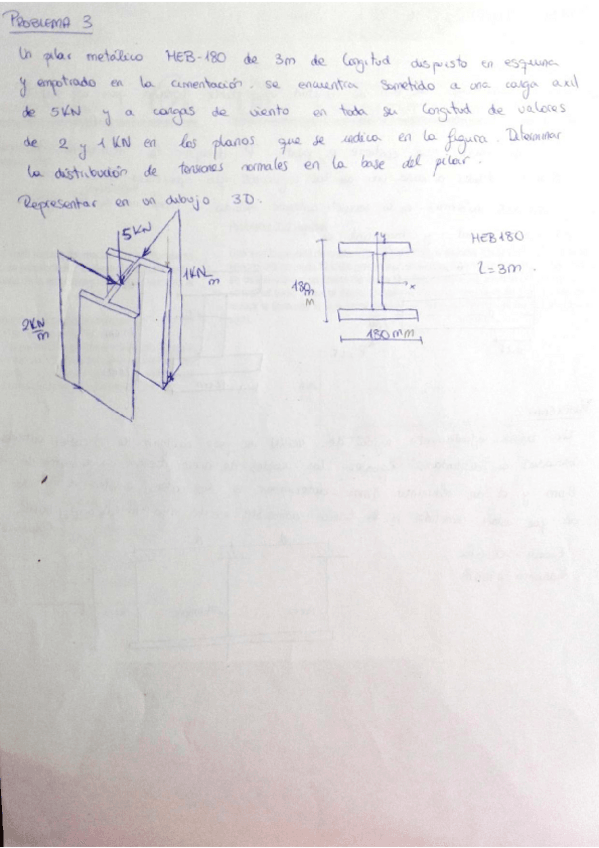 PROBLEMA 3
Un pilar metálico HEB-180 de 3m de longitud dispuesto en esquina
y empotrado en la cimentación. se encuentra sometido a una carga axil
de 5KN y a cargas de viento en toda su longitud de valores
de 2 y 1 KN en los planos que se indica en la figura. Determinar
la distribución de tensiones normales en la base del pilar.
Representar en un dibujo 3D.
5KN
1KN/m
2KN/m
y
x
180mm
180mm
HEB180
l=3m.